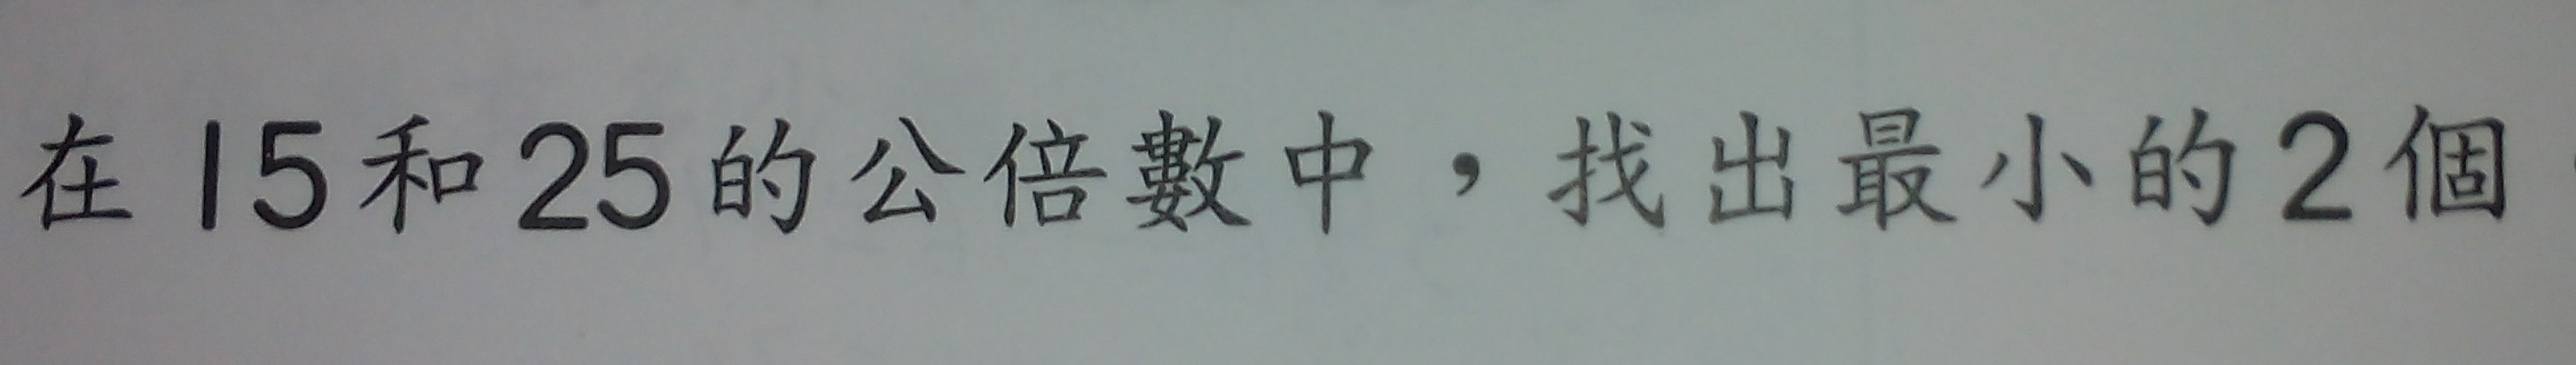 在15和25的公倍數中，找出最小的2個